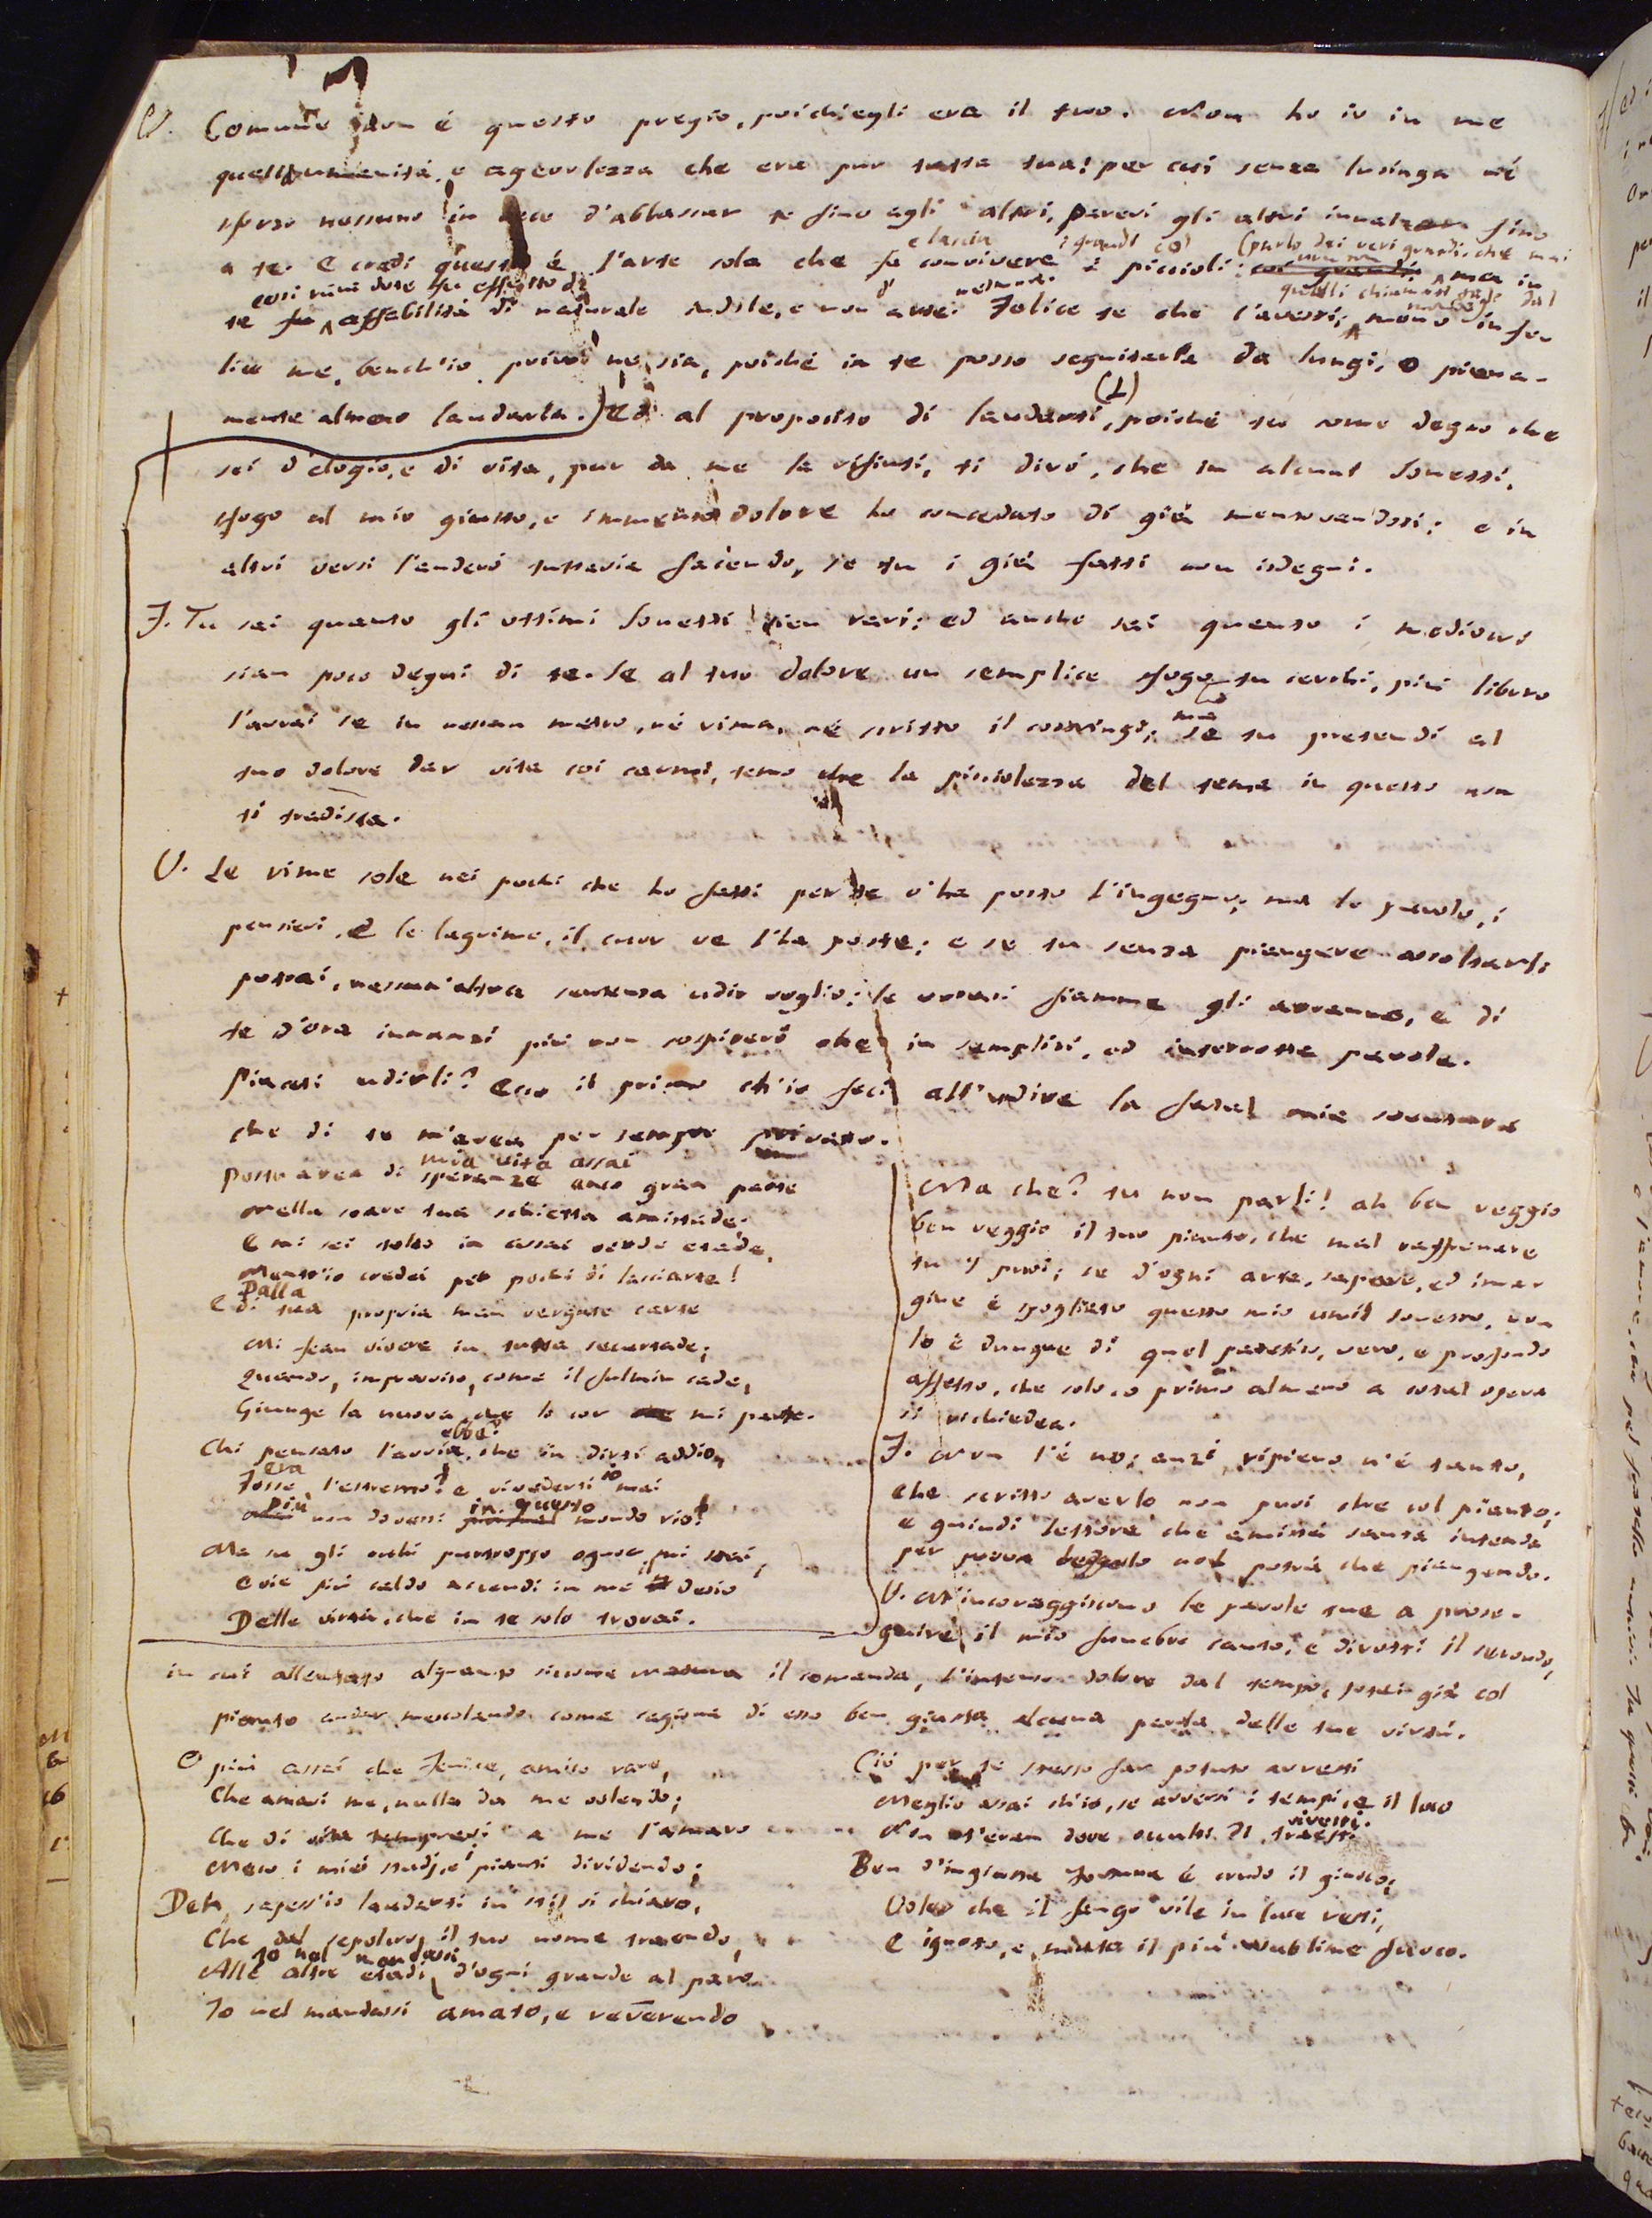 V. Comune non é questo pregio, poich'egli era il tuo. Non ho io in me
quell'umanità, e agevolezza che era pur tutta tua! per cui senza lusinga nè
sforzo nessuno in vece d'abbassar te fino agli altri, parevi gli altri innalzar fino
e lascia i grandi (parlo dei veri grandi, che mai
a te. E credi questa é l'arte sola che fa convivere i piccioli coi grandi ma in
così rara dote fu effetto di d' nessuna quelli chiamati tali dal
te fu affabilità di naturale indole, e non arte. Felice te che l'avesti, meno infe-
lice me, bench'io privo ne sia, poiché in te posso seguitarla da lungi, o piena-
mente almeno laudarla. Ed al proposito di laudarti, (1) poiché tu come degno che
sei d'elogio, e di vita, pur da me la rifiuti, ti diró, che in alcuni sonetti,
sfogo al mio giusto, e immenso dolore ho conceduto di già mentovandoti: e in
altri versi l'anderó tuttavia facendo, se tu i già fatti non isdegni.
F. Tu sai quanto gli ottimi sonetti sien rari: ed anche sai quanto i mediocri
sian poco degni di te. Se al tuo dolore un semplice sfogo tu cerchi, piú libero
l'avrai se in nessun metro, né rima, né scritto il costringi; ma se tu pretendi al
tuo dolore dar vita coi carmi, temo che la picciolezza del tema in questo non
ti tradisca.
V. Le rime sole nei pochi che ho fatti per te v'ha posto l'ingegno; ma le parole, i
pensieri, e le lagrime, il cuor ve l'ha poste; e se tu senza piangere ascoltarli
potrai, nessun'altra sentenza udir voglio: le voraci fiamme gli avranno, e di
te d'ora innanzi piú non sospireró che in semplici, ed interrotte parole.
Piaceti udirli? Ecco il primo ch'io feci all'udire la fatal mia sventura
che di te m'avea per sempre privato.
mia vita assai
Posto avea di speranze anco gran parte
Nella soave tua schietta amistade.
E mi sei tolto in assai verde etade,
Mentr'io credei per pochi dí lasciarte!
Dalla
E di tua propria man vergate carte
Mi fean vivere in tutta securtade;
Quando, improvviso, come il fulmin cade,
Giunge la nuova che lo cor mi parte.
ebbe?
Chi pensato l'avria, che in dirti addio,
era
Fosse l'estremo? e rivederti io mai
piú in questo
non dovessi mondo rio!
Ma su gli occhi purtroppo ognor mi stai,
E vie piú caldo accendi in me desio
Delle virtú, che in te solo trovai.
Ma che? tu non parli! ah ben veggio
ben veggio il tuo pianto, che mal raffrenare
tu puoi; se d'ogni arte, sapere, ed imma-
gine è spogliato questo mio umil sonetto, non
lo è dunque di quel patetico, vero, e profondo
affetto, che solo, o primo almeno a cotal opera
si richiedea.
F. Non l'é no; anzi ripieno n'é tanto,
che scritto averlo non puoi che col pianto;
e quindi lettore che amistà senta intenda
per prova leggerlo not potria che piangendo.
V. M'incoraggiscono le parole tue a prose-
guire il mio funebre canto, e dirotti il secondo,
in cui allentato alquanto siccome natura il comanda, l'intenso dolore dal tempo, potei già col
pianto andar mescolando come cagione di esso ben giusta alcuna parte delle tue virtú.
O piú assai che Fenice, amico raro,
Che amavi me, nulla da me volendo;
Che di a me l'amaro
Meco i miei studj, e i pianti dividendo;
Deh, sapess'io laudarti in stil sí chiaro,
Che dal sepolcro il tuo nome traendo,
Io nel mandassi
Alle altre etadi d'ogni grande al paro
Io nel mandassi amato, e reverendo
Ció per te stesso far potuto avresti
Meglio assai ch'io, se avversi i tempi, e il loco
vivesti.
Non t'eran dove occulti dí traesti.
Ben d'ingiusta fortuna é crudo il giuoco;
Voler che il fango vile in luce resti,
E ignoto, e muta il piú sublime fuoco.